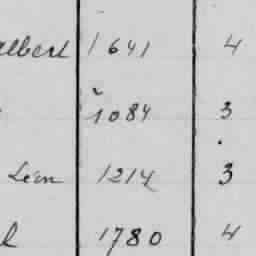 albert 1641 4
1084 3
Léon 1214 3
l 1780 4